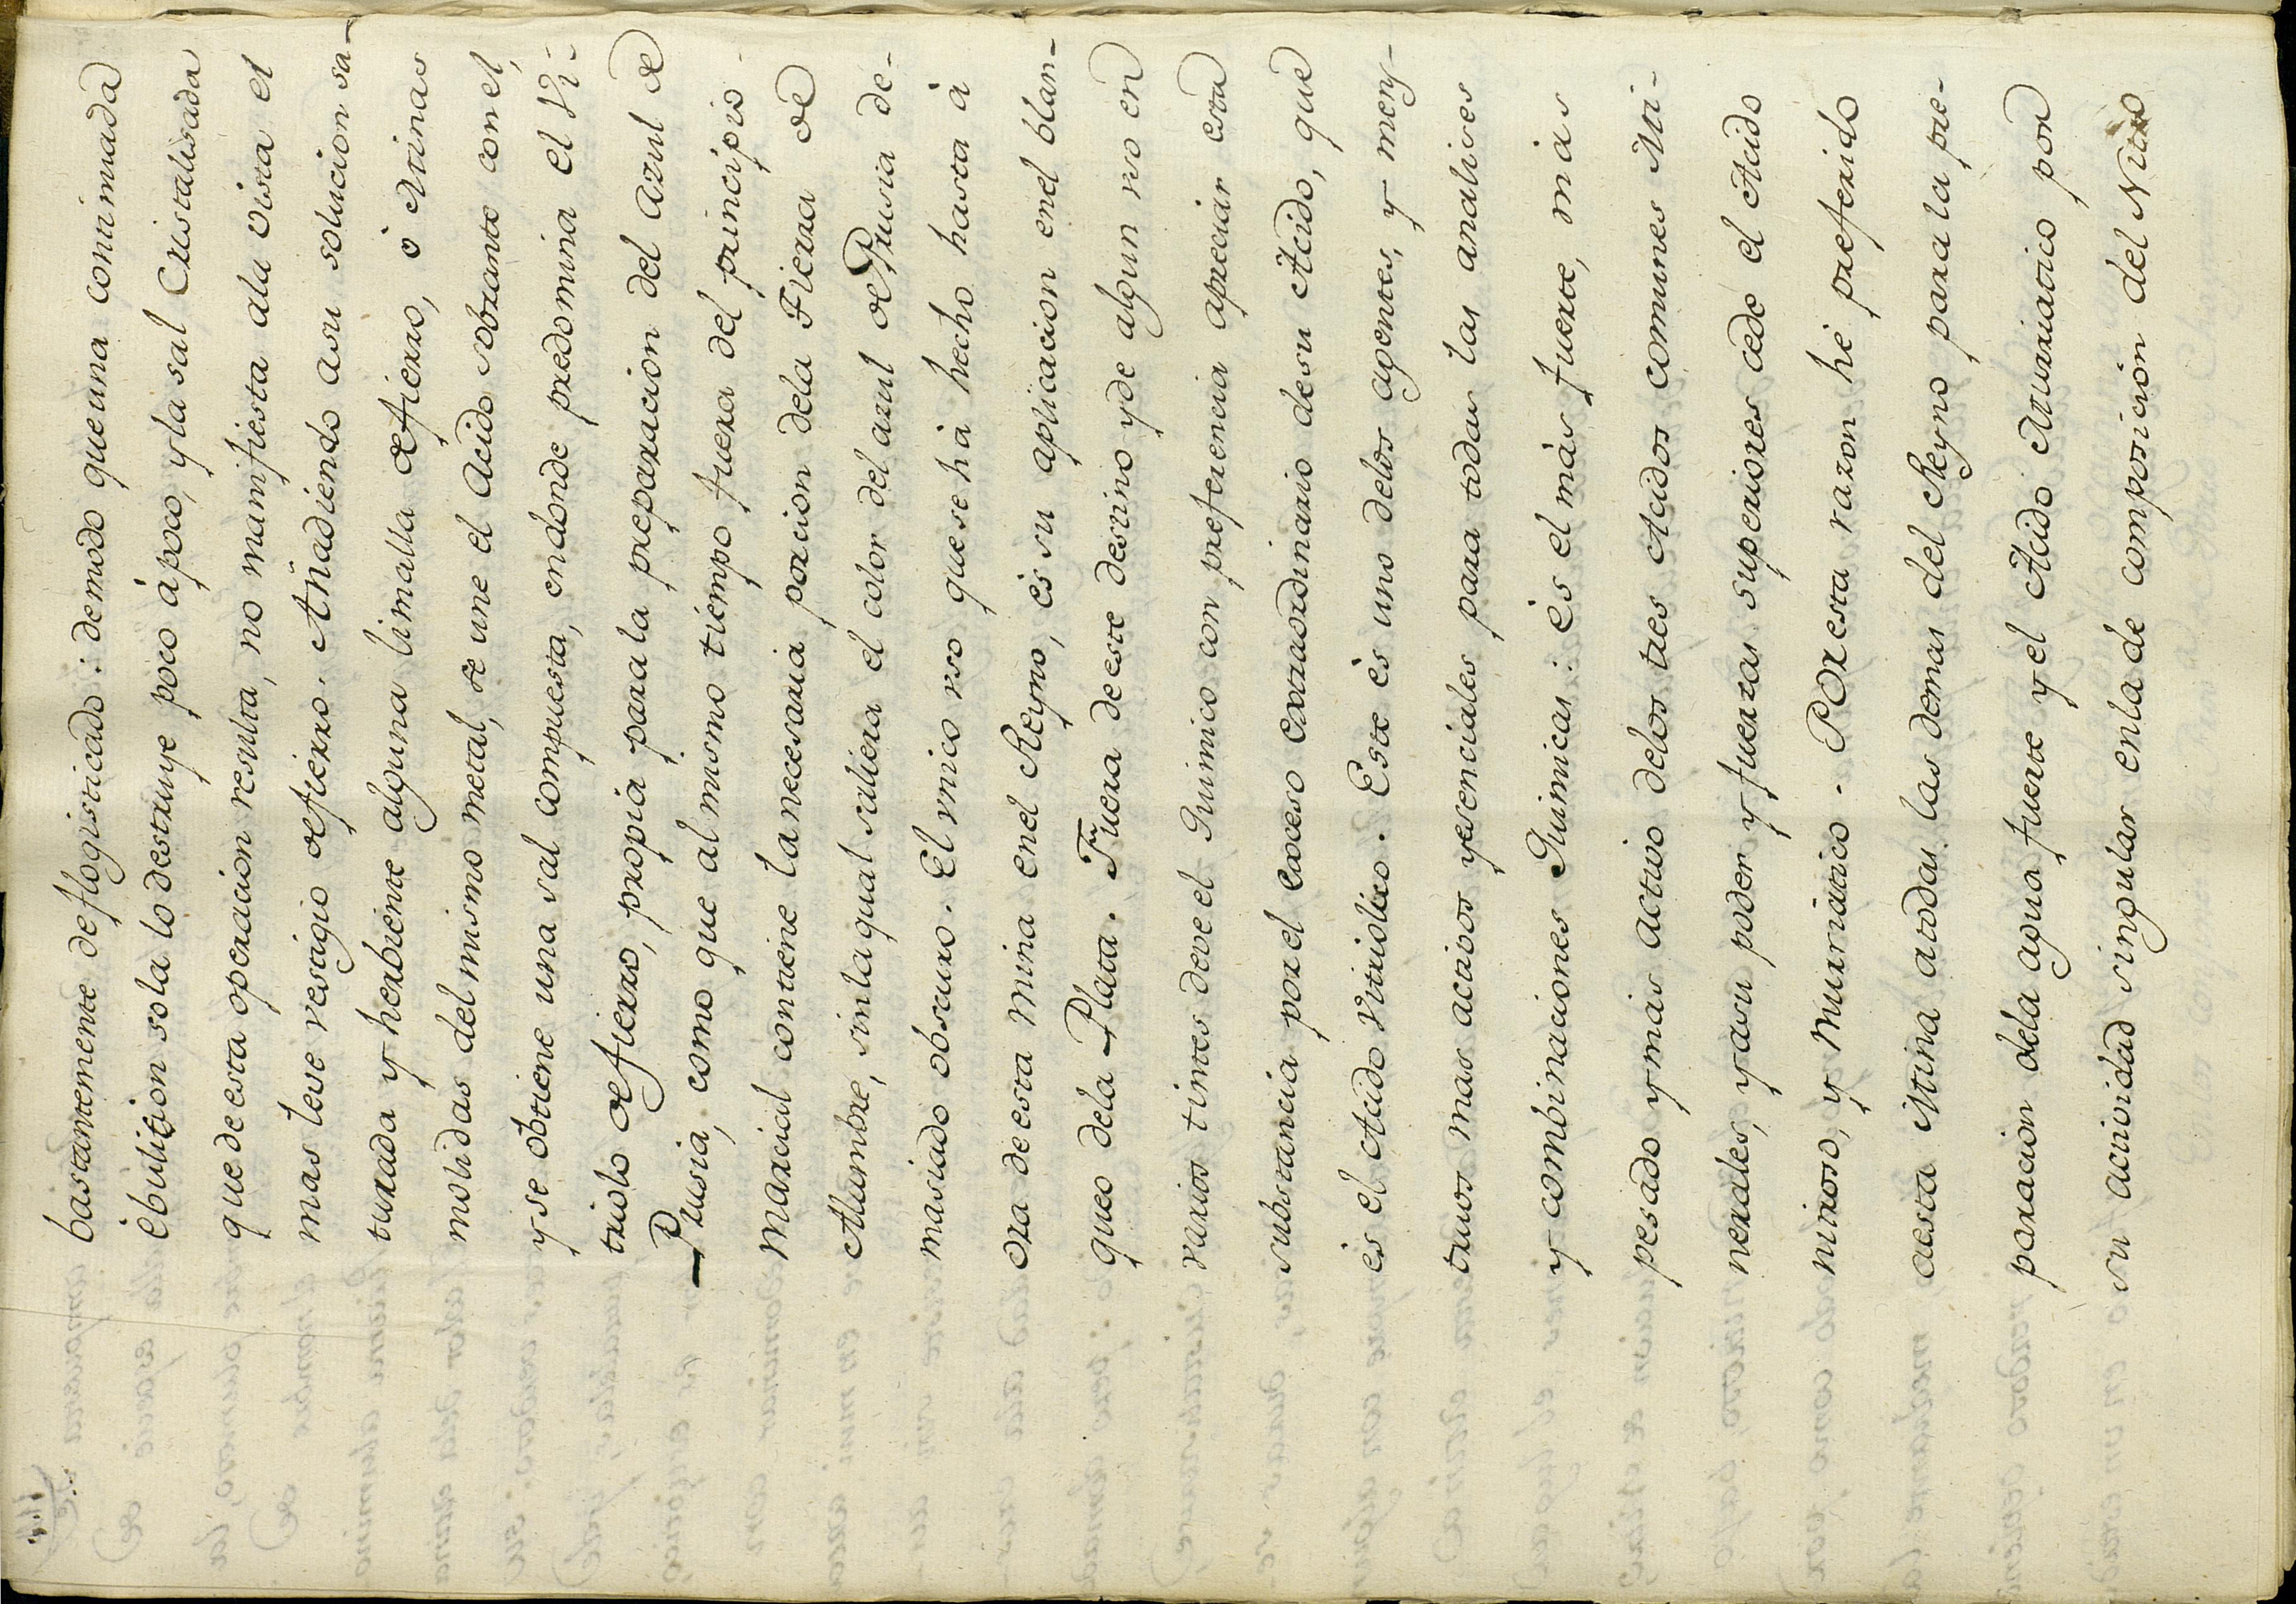 bastantemente deflogisticado: demodo queuna continuada
èbulition sola lo destruye poco àpoco, y la sal Cristalisada
que de esta operacion resulta, no manifiesta ala vista el
mas leve vestigio defierro. Añadiendo asu solucion sa-
turada y herbiente alguna limalla defierro, ò Minas
molidas del mismo metal, se une el Acido sobrante con el,
y se obtiene una sal compuesta, endonde predomina el Vi-
triolo defierro, propia para la preparacion del Azul de
Prusia, como que almismo tiempo fuera del principio
Marcial contiene lanecesaria porcion dela Tierra de
Alumbre, sinlaqual saliera el color del azul dePrusia de-
masiado obscuro. El vnico vso quese hà hecho hasta à
ora de esta Mina enel Reyno, ès su aplicacion enel blan-
queo dela Plata. Fuera de este destino yde algun vso en
varios tintes deve el Quimico con preferencia apreciar esta
substancia por el Exceso extraordinario desu Acido, que
ès el Acido Vitriolico. Este ès uno delos agentes, y mens-
truos mas activos yesenciales para todas las analises
y combinaciones Quimicas: ès el màs fuerte, mas
pesado y mas activo delos tres Acidos comunes Mi-
nerales, y asu poder y fuerzas superiores cede el Acido
nitroso, y Muriatico. Por esta razon hè preferido
aesta Mina atodas las demas del Reyno para la pre-
paracion dela agua fuerte y el Acido Muriatico por
su actividad singular enla de composicion del Nitro